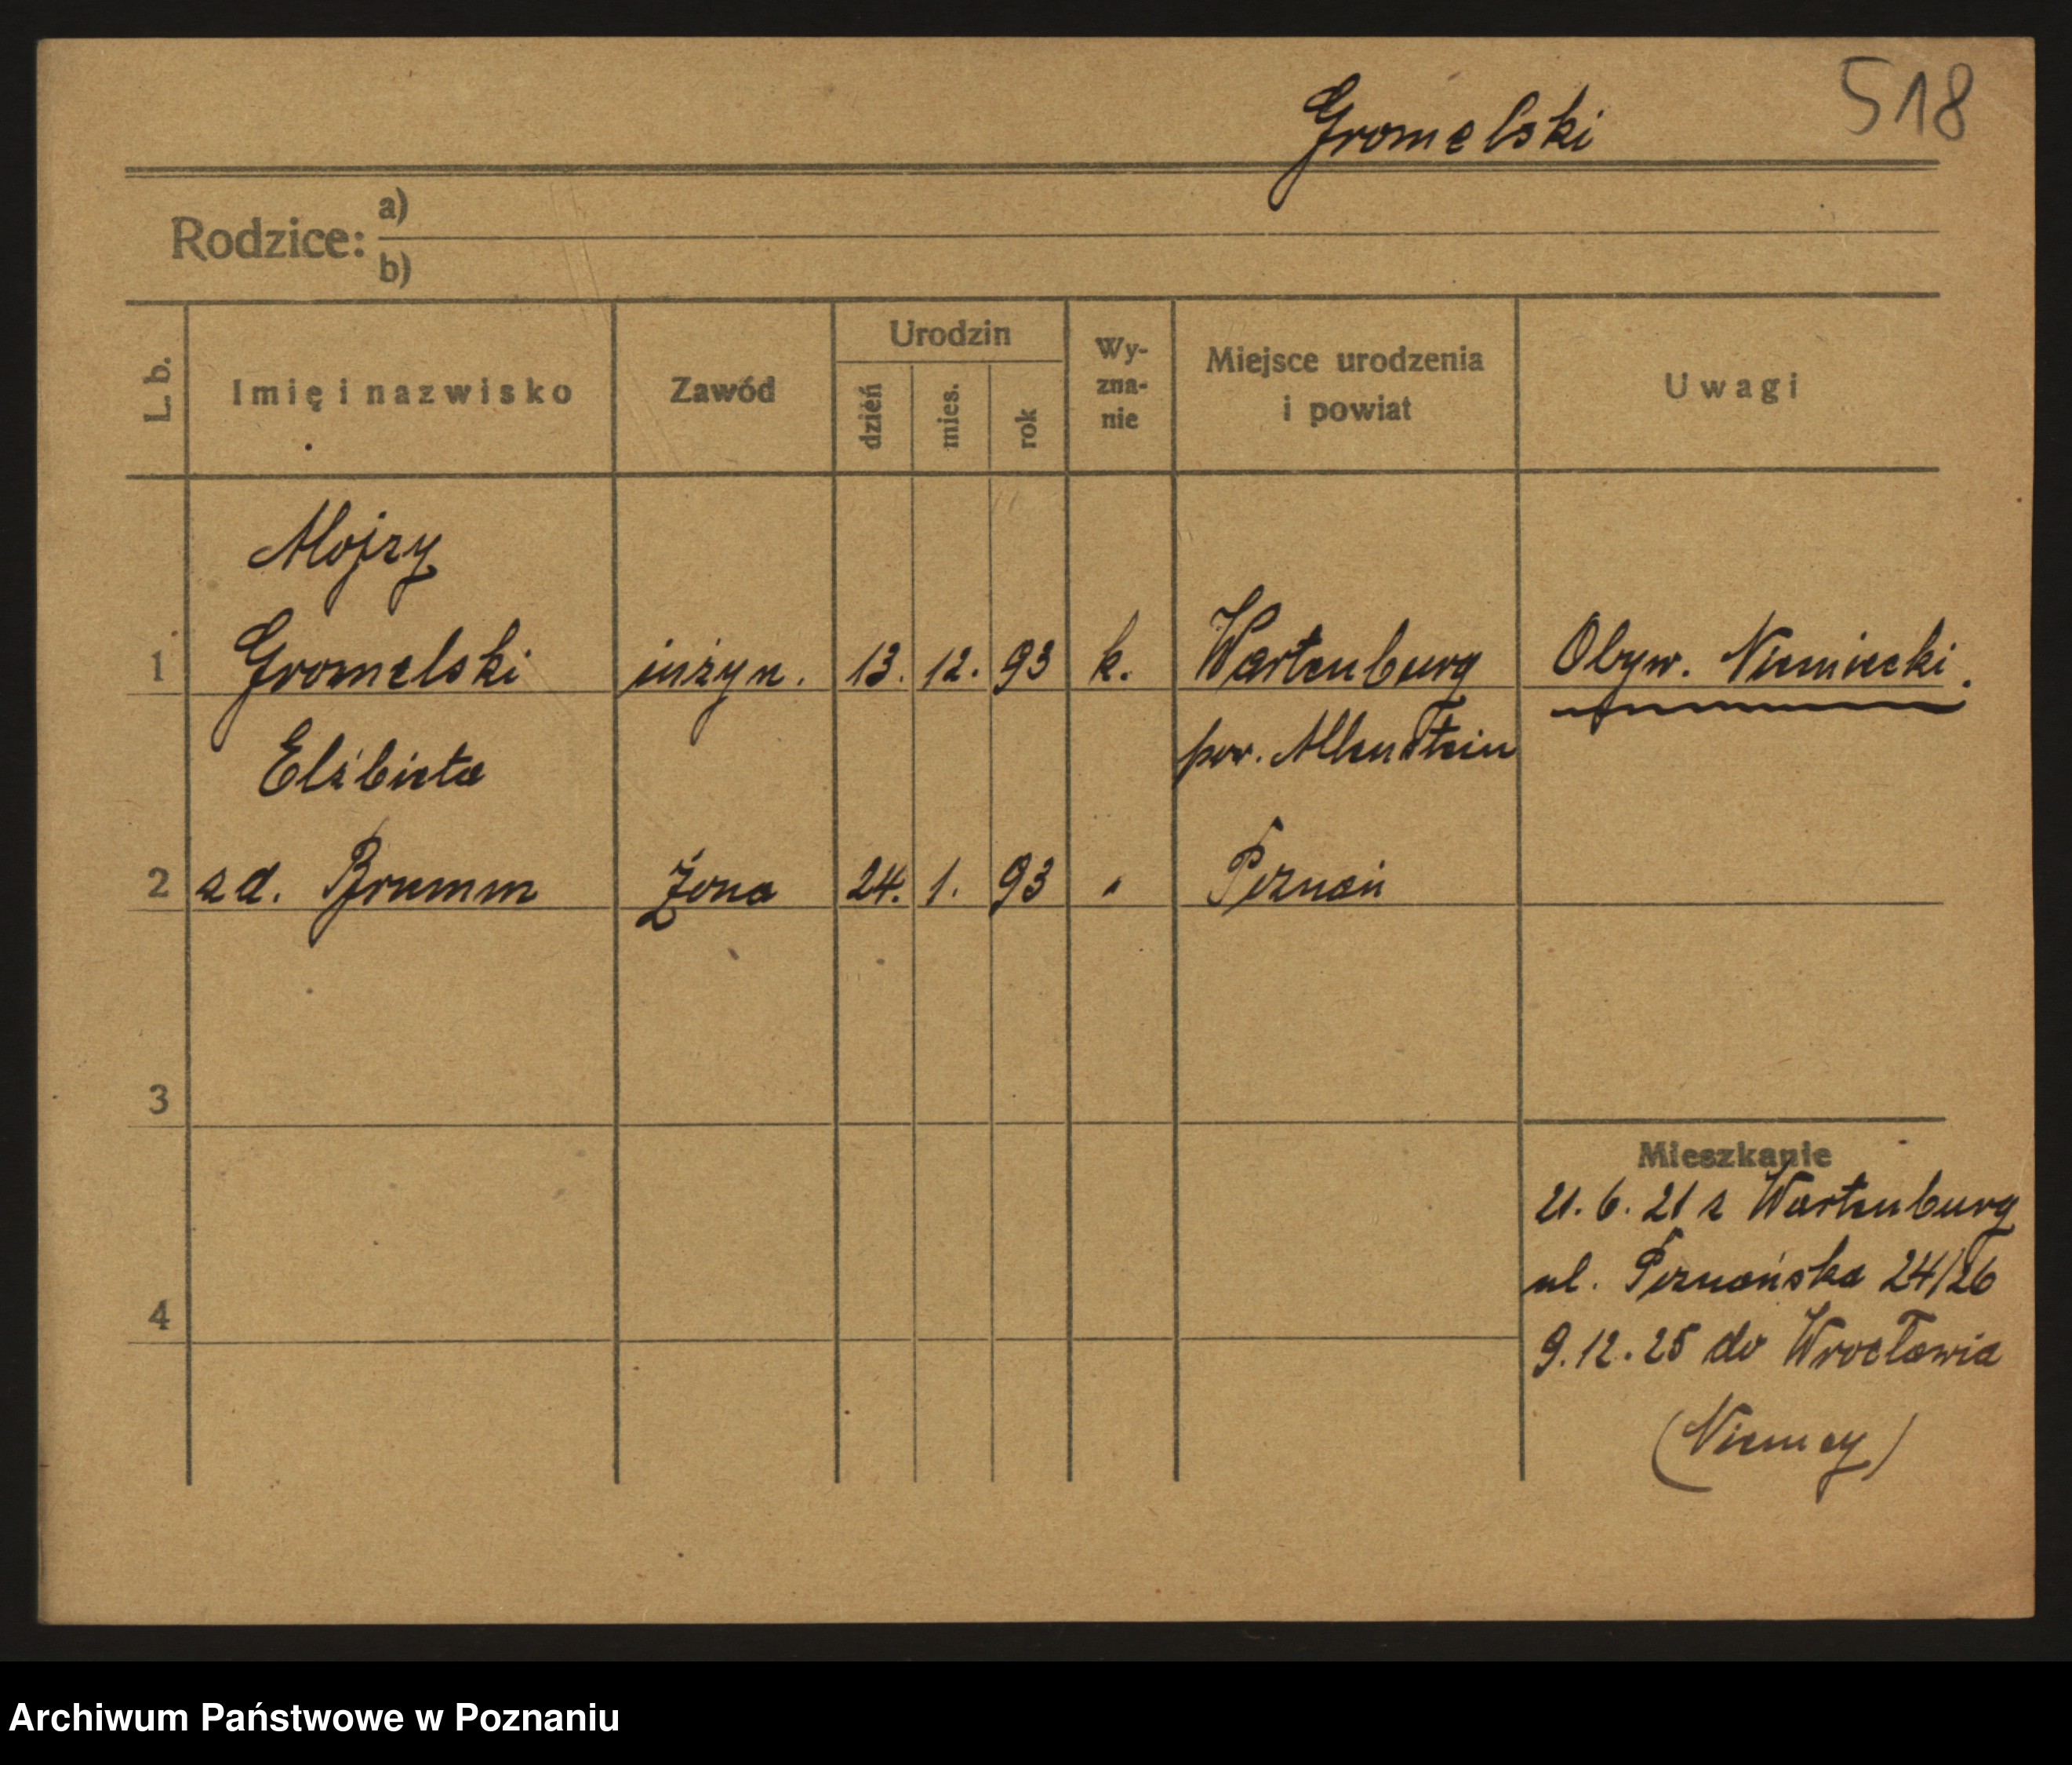 518
Gromelski
Rodzice: a)
b)
L. b.
Imię i nazwisko
Zawód
Urodzin
dzień
mies.
rok
Wy-
zna-
nie
Miejsce urodzenia
i powiat
Uwagi
Alojzy
1 Gromelski inżyn. 13. 12. 93 k. Wartenburg Obyw. Niemiecki.
pow. Allenstein
Elżbieta
2 zd. Brumm żona 24. 1. 93 " Poznań
3
Mieszkanie
21. 6. 21 z Wartenburg
ul. Poznańska 24/26
4
9. 12. 25 do Wrocławia
(Niemcy)
Archiwum Państwowe w Poznaniu